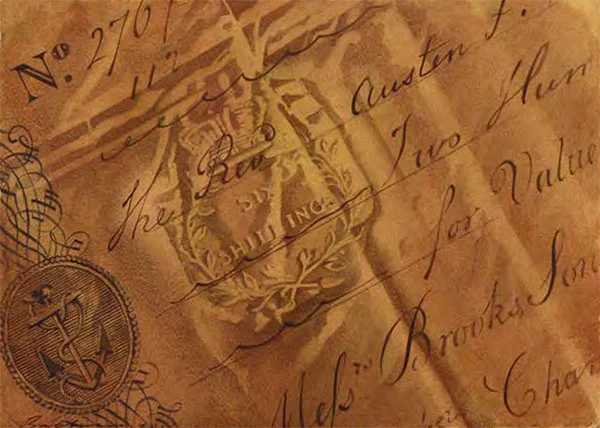 No. 2767
112
The Revd Austen F.
Two Hun
for Value
SIX
SHILLING
Messrs Brooks, Son
Char